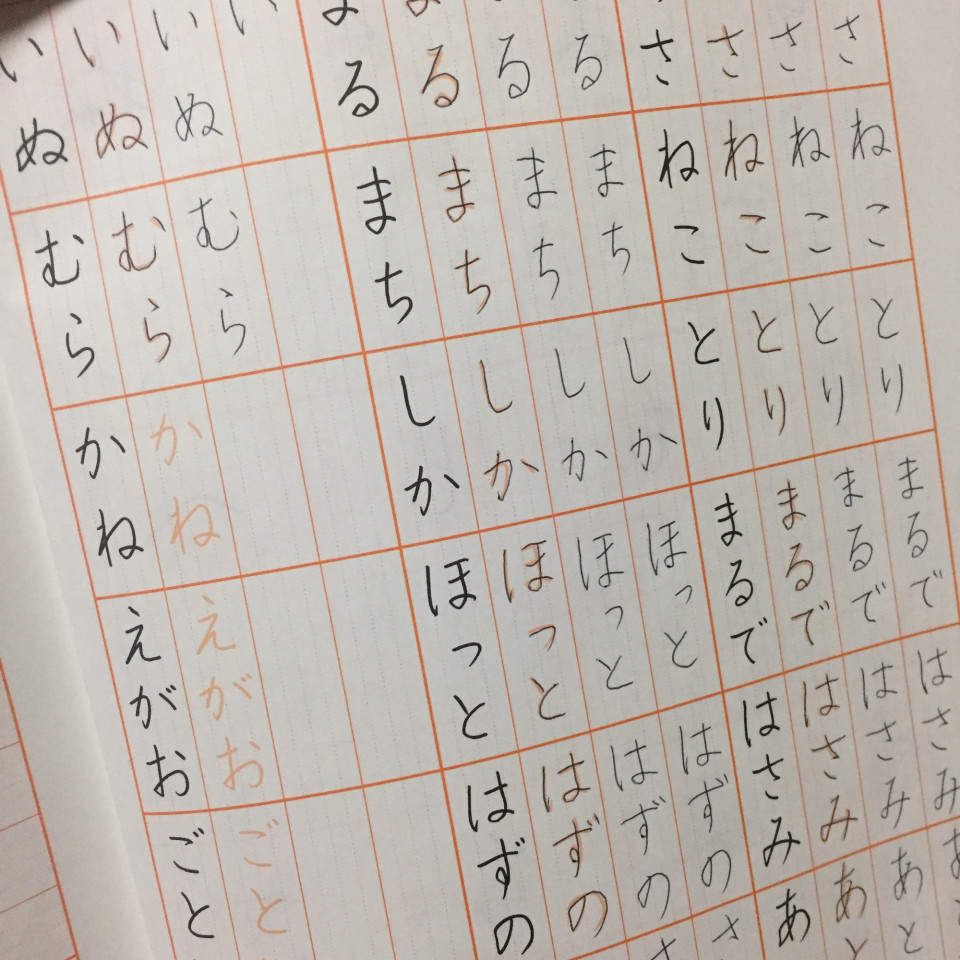 さ さ さ さ
ねこ ねこ ねこ ねこ
とり とり とり とり
まるで まるで まるで まるで
はさみ はさみ はさみ はさみ
あ あと あと
まる まる る る
まち まち まち まち
しか しか しか しか
ほっと ほっと ほっと ほっと
はずの はずの はずの はずの
さ さ
いぬ いぬ いぬ い
むら むら むら
かね かね
えがお えがお
ごと ごと